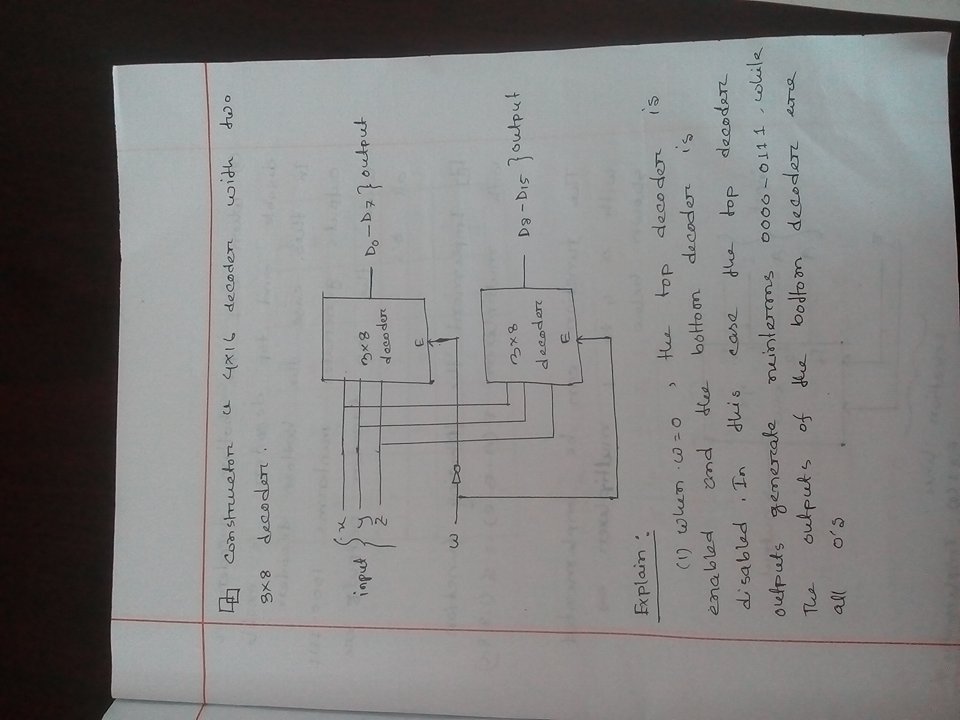 Constructor a 4×16 decoder with two
3×8 decoder.
input { x
y
z
3×8
decoder
E
D0-D7 } output
w
3×8
decoder
E
D8-D15 } output
Explain :
(1) when w=0 , the top decoder is
enabled and the bottom decoder is
disabled. In this case the top decoder
outputs generate minterms 0000-0111. while
The outputs of the bottom decoder are
all 0's